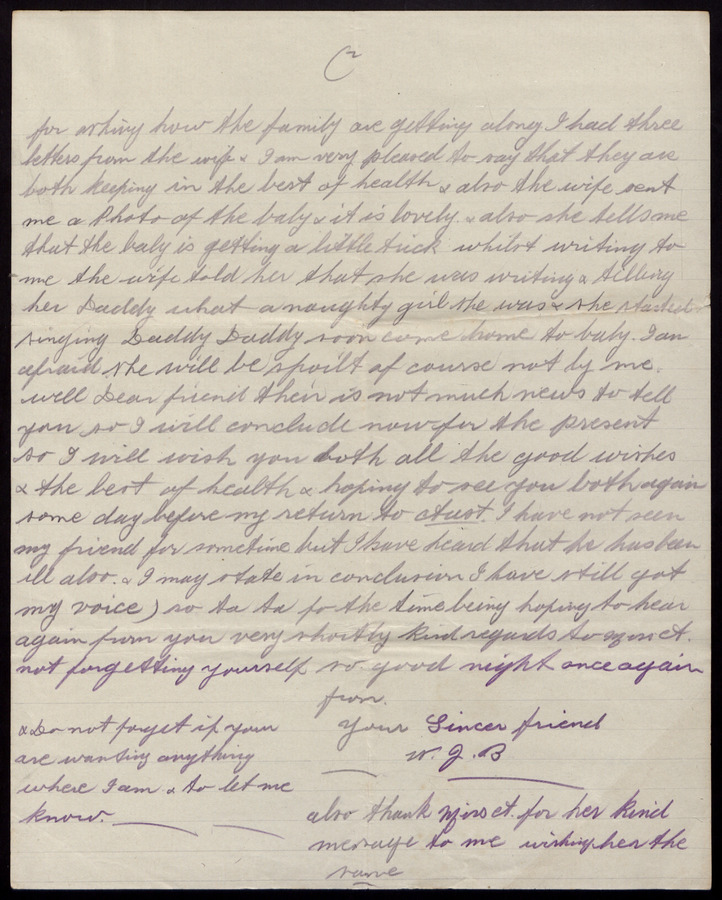 2
for asking how the family are getting along I had three
letters from the wife & I am very pleased to say that they are
both keeping in the best of health & also the wife sent
me a Photo of the baby & it is lovely. & also she tells me
that the baby is getting a little trick whilst writing to
me the wife told her that she was writing & telling
her Daddy what a naughty girl she was & she started
singing Daddy Daddy soon come home to baby. I am
afraid she will be spoilt of course not by me.
well Dear friend their is not much news to tell
you so I will conclude now for the present
so I will wish you both all the good wishes
& the best of health & hoping to see you both again
some day before my return to Aust. I have not seen
my friend for sometime but I have heard that he has been
ill also. & I may state in conclusion I have still got
my voice) so ta ta for the time being hoping to hear
again from you very shortly kind regards to
not forgetting yourself so good night once again
from.
Your Sincer friend
W. J. B
& Do not forget if your
are wanting anything
where I am & to let me
know.
also thank for her kind
message to me wishing her the
same